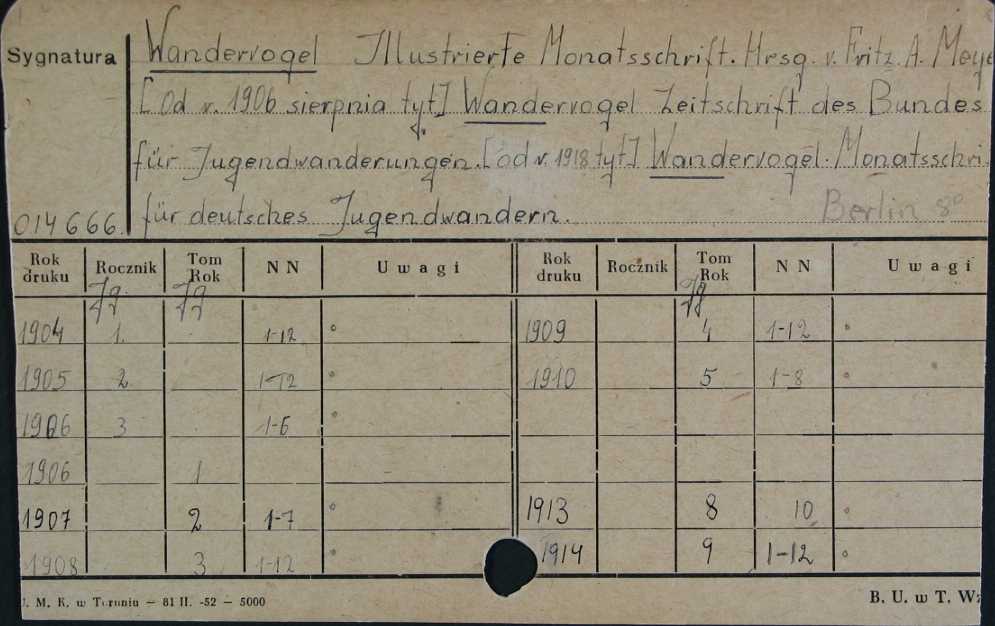 Sygnatura
Wandervogel Illustrierte Monatsschrift. Hrsg. v. Fritz. A. Meye
[od r. 1906 sierpnia tyt] Wandervogel Zeitschrift des Bundes
für Jugendwanderungen. [od r. 1918 tyt] Wandervogel. Monatsschri.
014666. für deutsches Jugendwandern. Berlin 8°
Rok druku Rocznik Tom Rok N N Uwagi Rok druku Rocznik Tom Rok N N Uwagi
Jg Jg Jg
1904 1. 1-12 1909 4 1-12
1905 2 1-12 1910 5 1-8
1906 3 1-6
1906 1
1907 2 1-7 1913 8 10
1908 3 1-12 1914 9 1-12
M. K. w Toruniu — 81 II. -52 — 5000 B. U. w T. W